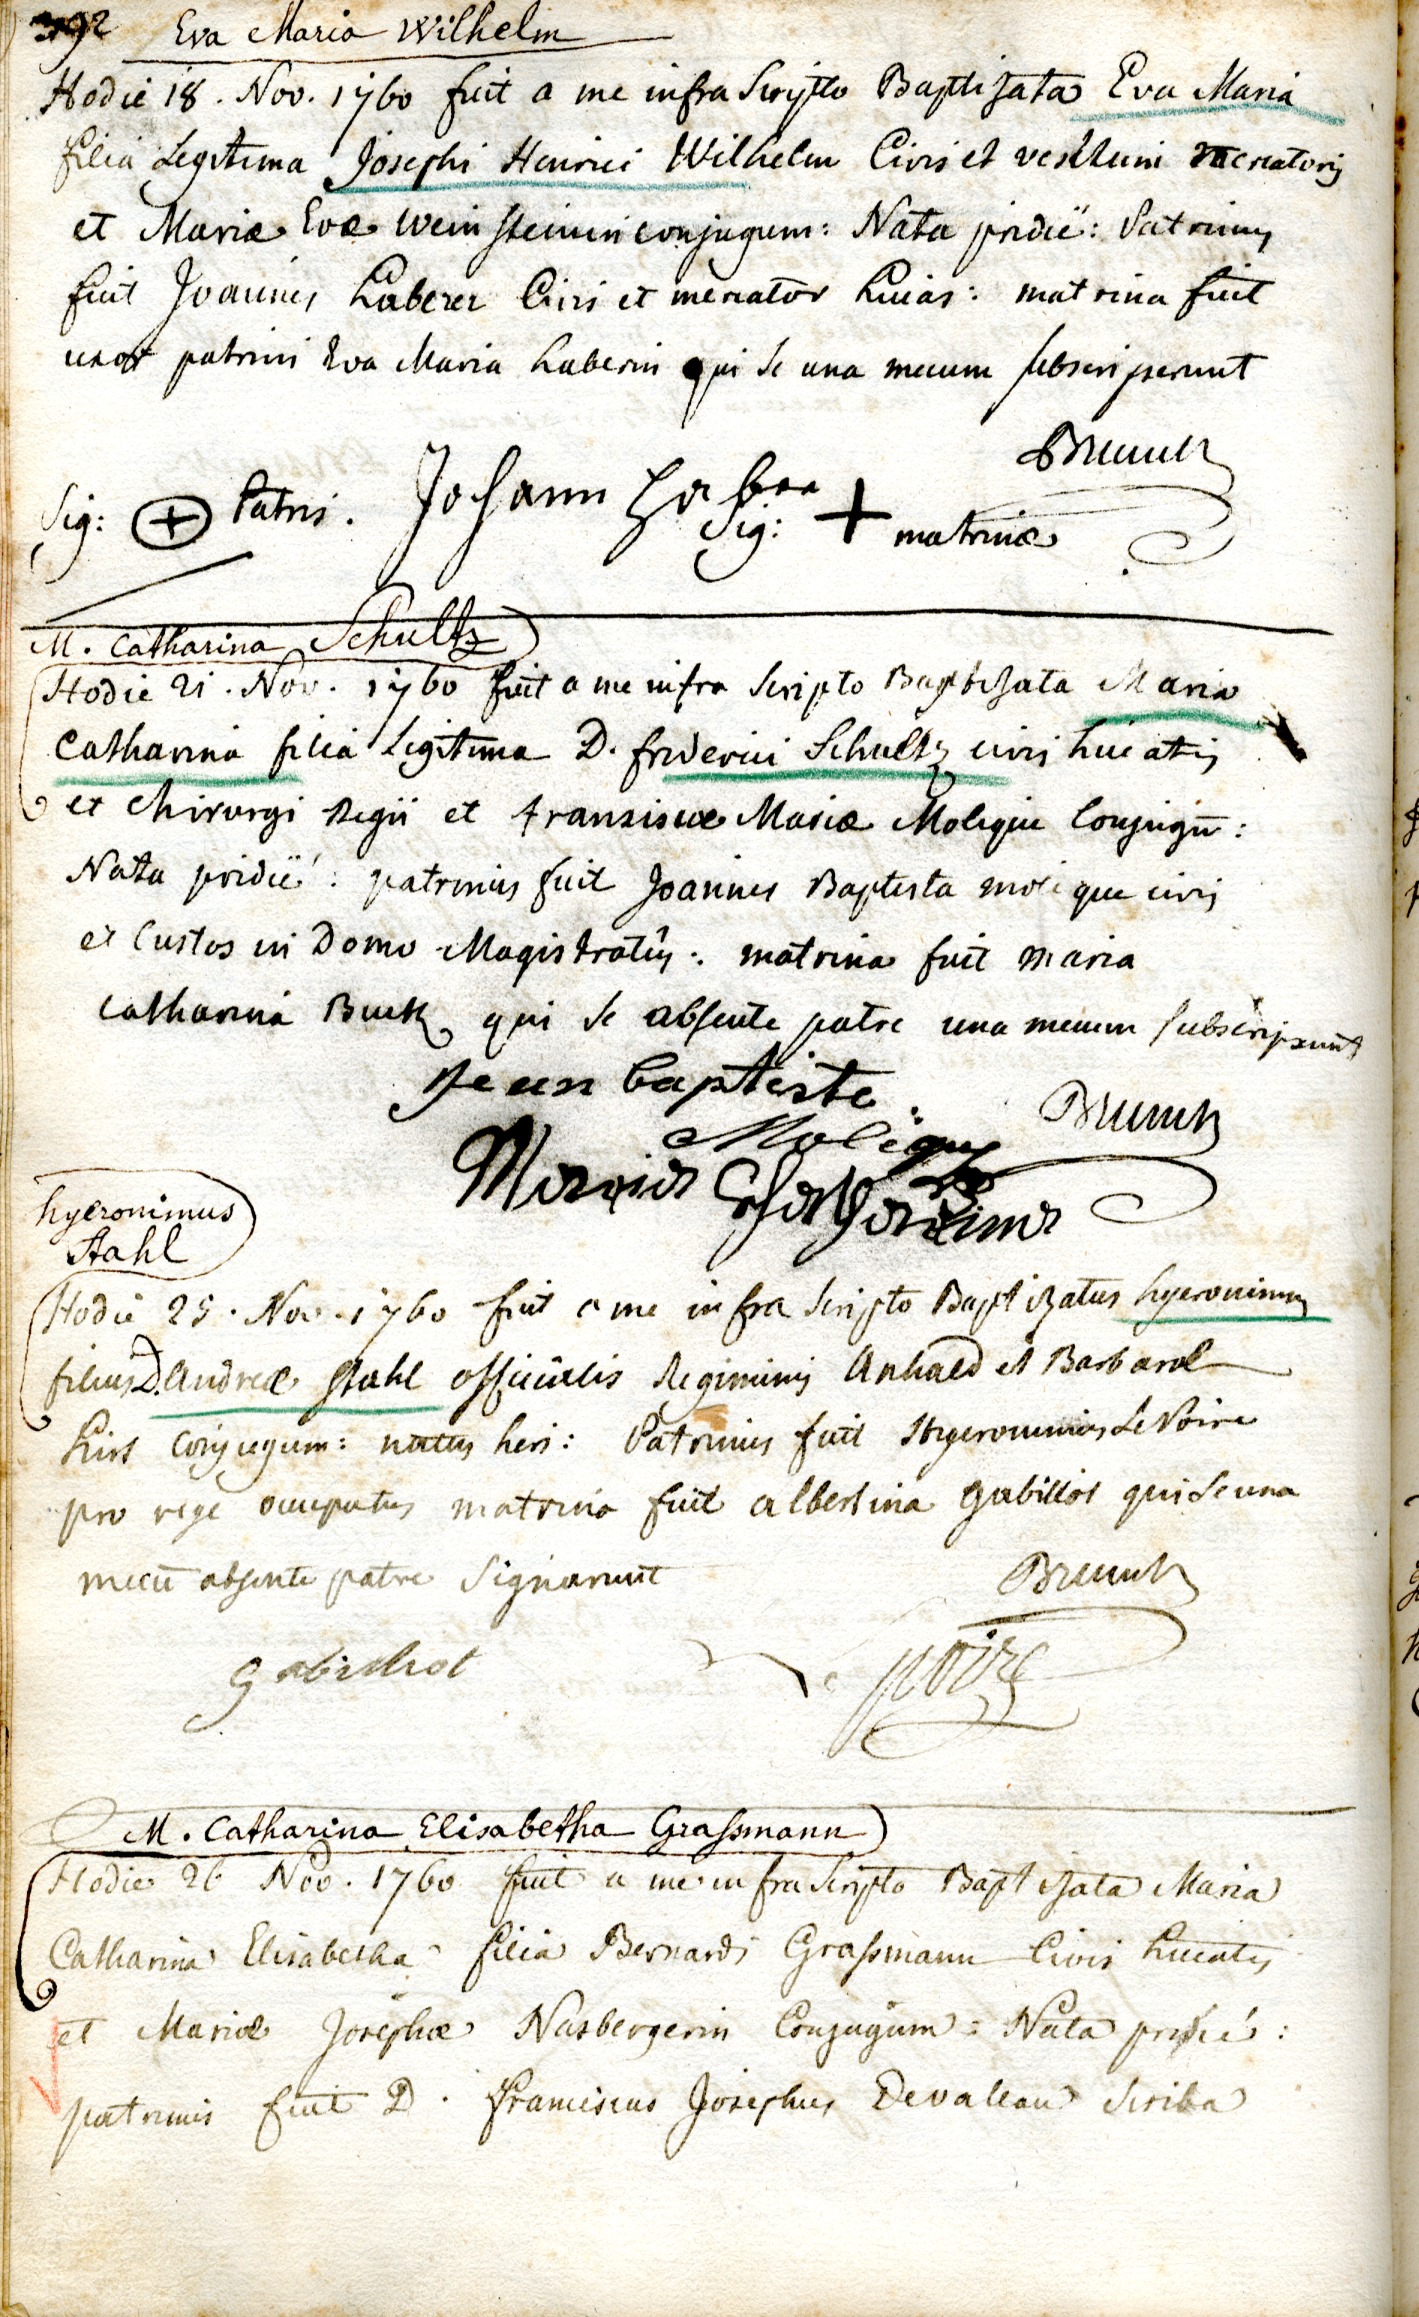 392 Eva Maria Wilhelm
Hodie 18. Nov. 1760 fuit a me infra Scripto Baptizata Eva Maria
filia Legitima Josephi Henrici Wilhelm Civis et
et Mariæ Evæ Weinsteinin conjugum: Nata pridie: Patrinus
fuit Joannes haberer Civis et mercator hujas: matrina fuit
uxor patrini Eva Maria haberin qui se una mecum subscripserunt
Brunck
Sig: + Patris. Johann
Sig: + matrinæ
M. Catharina Schultz
Hodie 21. Nov. 1760 fuit a me infra Scripto Baptizata Maria
Catharina filia Legitima D. friderici Schultz civis huiatis
et Chirurgi Regii et franziscæ Mariæ Molique Conjugū:
Nata pridie: patrinus fuit Joannes Baptista molique civis
et Custos in Domo Magistratûs: matrina fuit Maria
Catharina Buck qui se absente patre una mecum subscripserunt
Jean baptiste
Molique
Brunck
Maria Catharina
hyeronimus
Stahl
Hodie 25. Nov. 1760 fuit a me infra Scripto Baptizatus hyeronimus
filius D. Andreæ Stahl officialis Regiminis Anhald et Barbaræ
hirt conjugum: natus heri: Patrinus fuit Hyeronimus Le Noire
pro rege occupatus matrina fuit albertina Gabillot qui se una
mecū absente patre Signarunt
Brunck
Gabilliot
Le noire
M. Catharina Elisabetha Graſsmann
Hodie 26 Nov. 1760 fuit a me infra Scripto Baptizata Maria
Catharina Elisabetha filia Bernardi Graſsmann Civis huiatis
et Mariæ Josephæ Nasbergerin Conjugum: Nata pridie:
patrinus fuit D. Franciscus Josephus Devallau Scriba